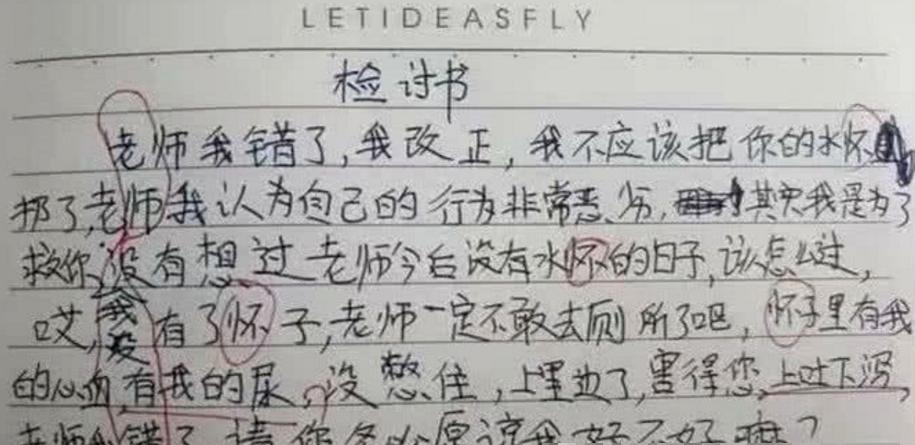 LETIDEASFLY
检讨书
老师我错了,我改正,我不应该把你的水怀
扔了,老师我认为自己的行为非常恶劣,其实我是为了
救你,没有想过老师今后没有水怀的日子,该怎么过,
哎,我没有了怀子,老师一定不敢去厕所了吧,怀子里有我
的心血,有我的尿,没憋住,上里边了,害得您上吐下泻,
老师我错了,请你务必原谅我好不好嘛?